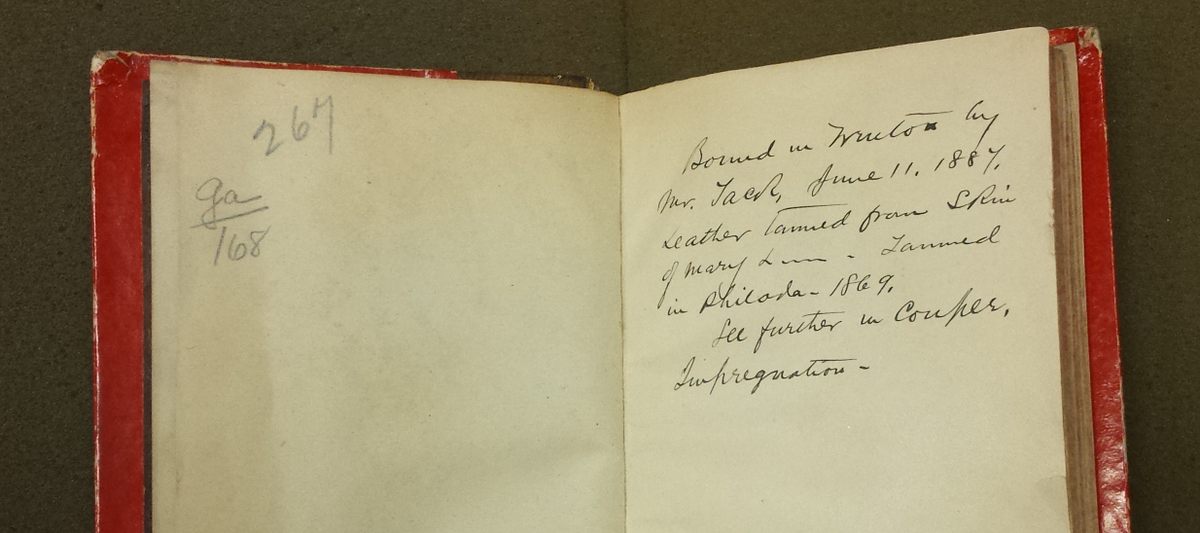 267
Ga
168
Bound in Trenton by
Mr. Jacob, June 11. 1887.
Leather Tanned from Skin
of Mary L—— - Tanned
in Philada - 1869.
See further in Couper,
Impregnation -